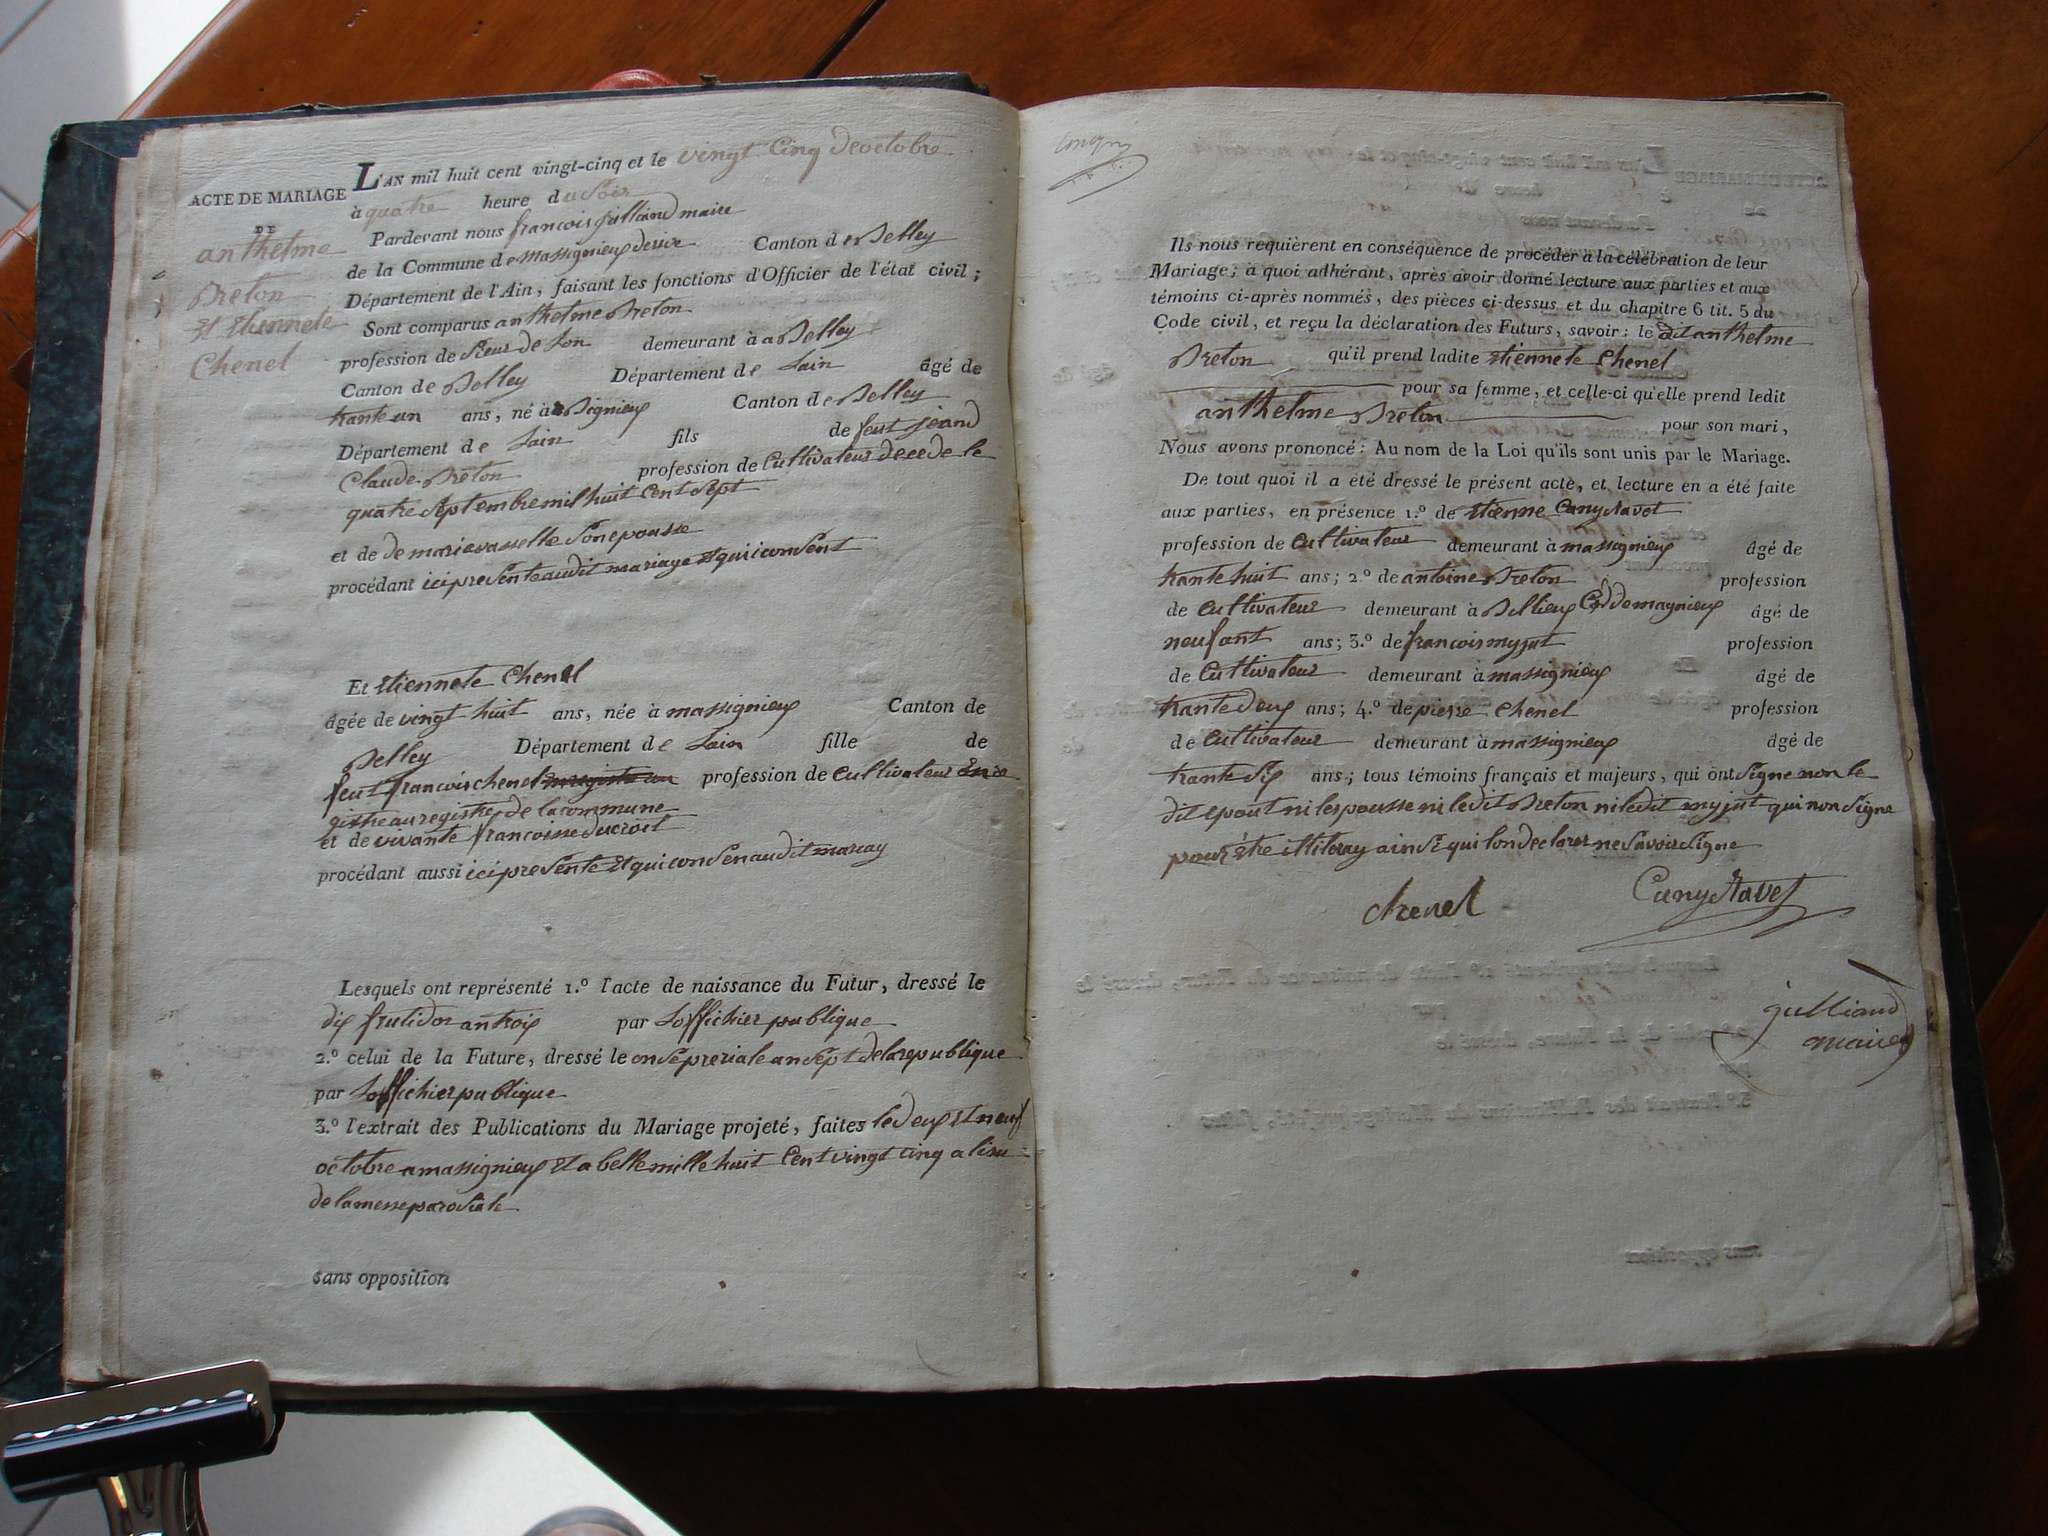 ACTE DE MARIAGE
DE
anthelme
Breton
Et Etiennete
Chenel
L'AN mil huit cent vingt-cinq et le vingt cinq deoctobre
à quatre heure du Soir
Pardevant nous francois julliand maire
de la Commune de massignieux derive Canton de Belley
Département de l'Ain, faisant les fonctions d'Officier de l'état civil;
Sont comparus anthelme Breton
profession de Sieur de Lon demeurant à a Belley
Canton de Belley Département de Lain âgé de
trante un ans, né à Bignieux Canton de Belley
Département de Lain fils de feut jeand
Claude Breton profession de Cultivateur decede le
quatre Septembre mil huit Cent Sept
et de de marie vasselle Son epousse
procédant ici presente audit mariage Et qui i consent
Et Etiennete Chenel
âgée de vingt huit ans, née à massignieux Canton de
Belley Département de Lain fille de
feut francois chenel profession de Cultivateur Enre
gistre au registre de la commune
et de vivante francoisse ducroit
procédant aussi ici presente Et qui consen audit mariay
Lesquels ont représenté 1.º l'acte de naissance du Futur, dressé le
dix frutidor an trois par Loffichier publique
2.º celui de la Future, dressé le onse preriale an Sept de la republique
par Loffichier publique
3.º l'extrait des Publications du Mariage projeté, faites le deux Et neuf
octobre a massignieux Et a belle mille huit Cent vingt cinq a lisu
de la messe parosiale
sans opposition
Ils nous requièrent en conséquence de procéder à la célébration de leur
Mariage; à quoi adhérant, après avoir donné lecture aux parties et aux
témoins ci-après nommés, des pièces ci-dessus et du chapitre 6 tit. 5 du
Code civil, et reçu la déclaration des Futurs, savoir: le dit anthelme
Breton qu'il prend ladite Etiennete Chenel
pour sa femme, et celle-ci qu'elle prend ledit
anthelme Breton pour son mari,
Nous avons prononcé: Au nom de la Loi qu'ils sont unis par le Mariage.
De tout quoi il a été dressé le présent acte, et lecture en a été faite
aux parties, en présence 1.º de Etienne Canystavet
profession de Cultivateur demeurant à massignieux âgé de
trante huit ans; 2.º de antoine Breton profession
de Cultivateur demeurant à Billieux de magnieux âgé de
neufant ans; 3.º de francois myjut profession
de Cultivateur demeurant à massignieux âgé de
trante deux ans; 4.º de pierre Chenel profession
de Cultivateur demeurant à massignieux âgé de
trante Six ans; tous témoins français et majeurs, qui ont Signe non le
dit epout ni lespousse ni le dit Breton ni ledit myjut qui non Signe
pour être illiteray ainsi qui lon declarer ne Savoir Signe
chenel Canystavet
julliand
maire